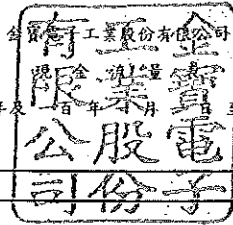 金寶電子工業股份有限公司
現金流量表
年及 百年 月 日至
金寶電子
工業股份
有限公司